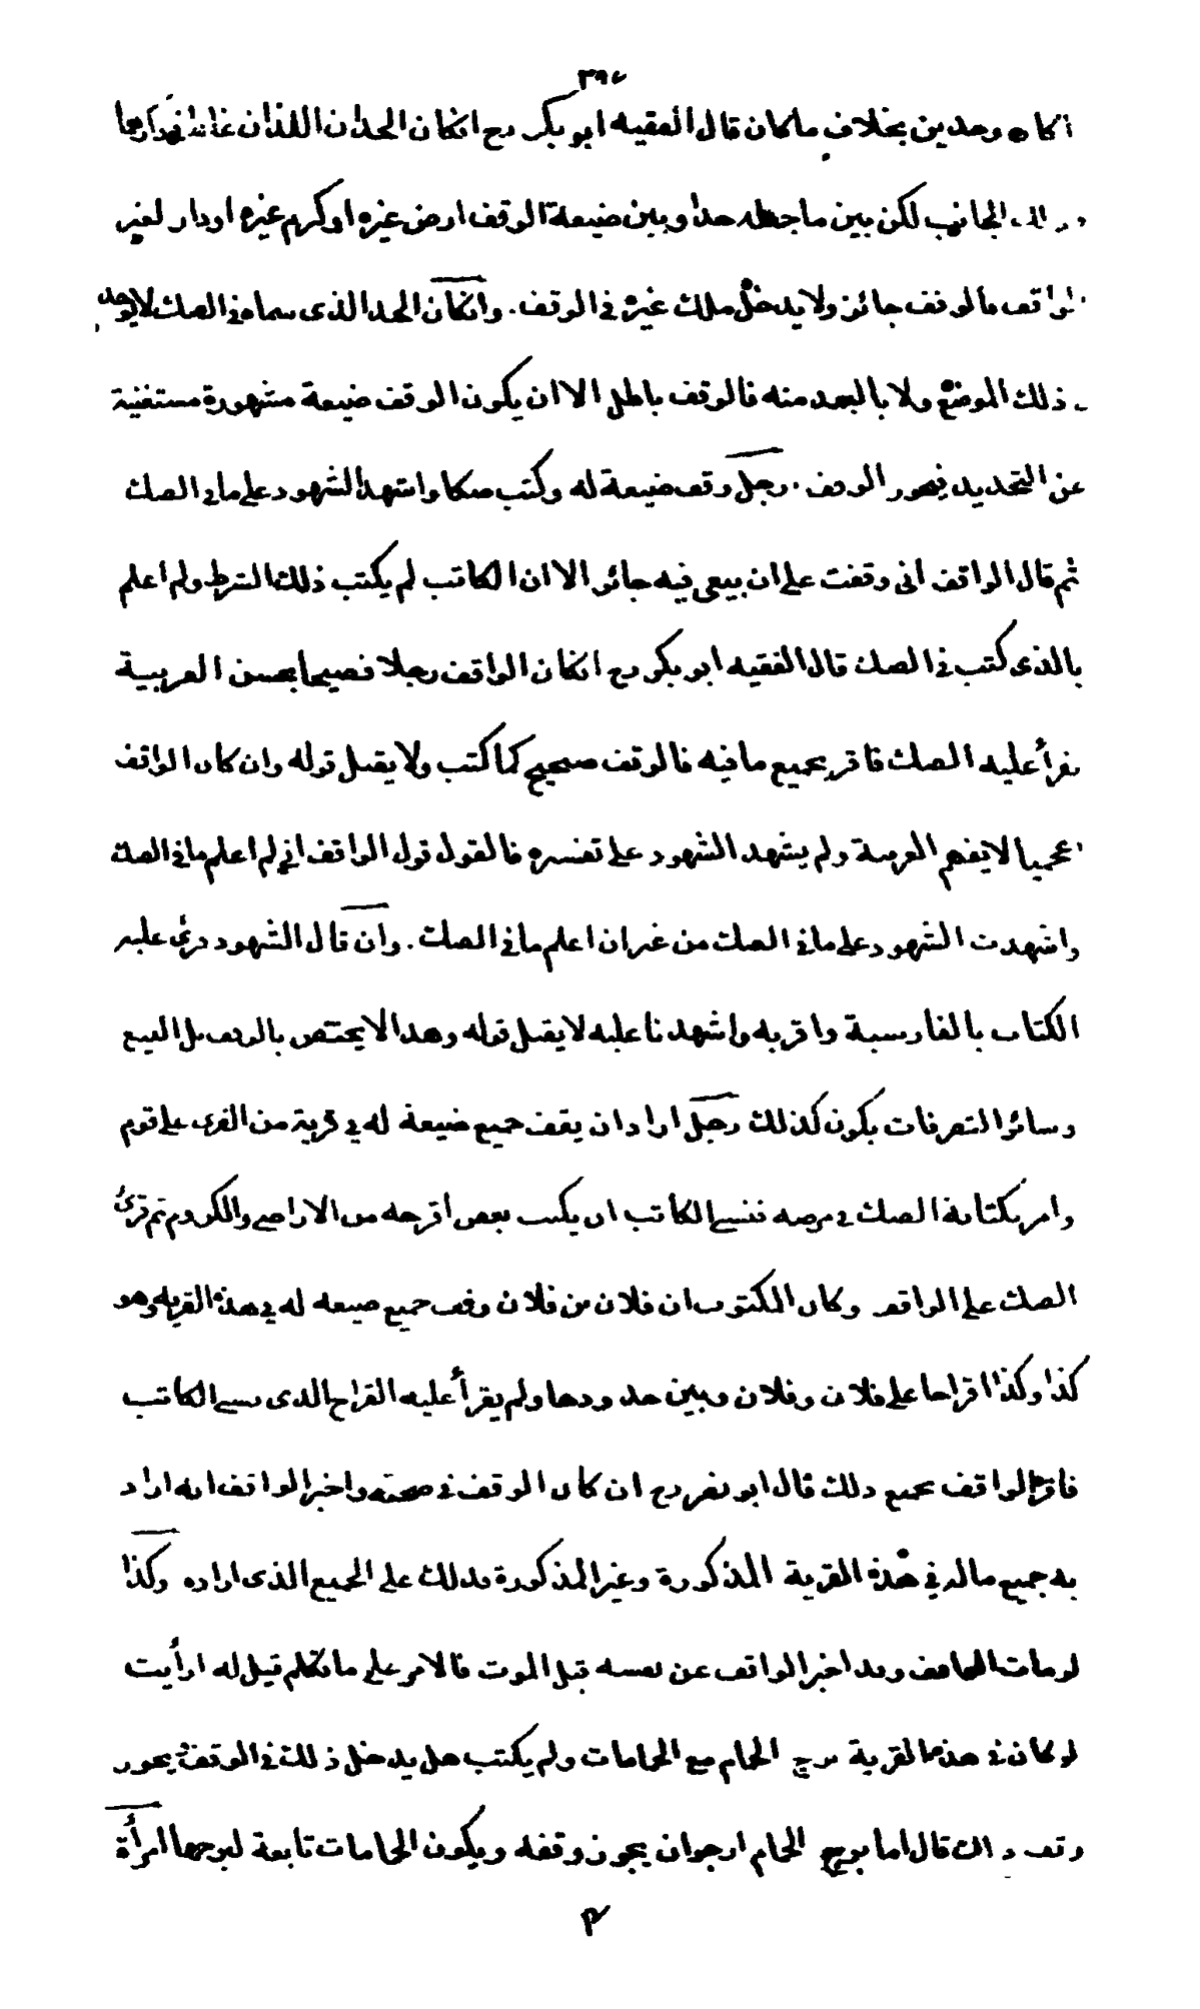 ٣٩٧
اكاه وحدين بخلاف ما كان قال الفقيه ابو بكر رح انكان الحدان اللذان
الجانب لكن بين ما جعله حدا وبين ضيعة الوقف ارض غيره او كرم غيره او دار لغير
الواقف فالوقف جائز ولا يدخل ملك غيره في الوقف . وانكان الحد الذى سماه في الصك لا يوجد
ذلك الموضع ولا بالبعد منه فالوقف باطل الا ان يكون الوقف ضيعة مشهورة مستغنية
عن التحديد فيجوز الوقف . رجل وقف ضيعة له وكتب صكا واشهد الشهود على ما في الصك
ثم قال الواقف انى وقفت على ان بيعى فيه جائز الا ان الكاتب لم يكتب ذلك الشرط ولم اعلم
بالذى كتب في الصك قال الفقيه ابو بكر رح انكان الواقف رجلا فصيحا يحسن العربية
فقرأ عليه الصك فاقر بجميع ما فيه فالوقف صحيح كما كتب ولا يقبل قوله وان كان الواقف
اعجميا لا يفهم العربية ولم يشهد الشهود على تفسيره فالقول قول الواقف انى لم اعلم ما في الصك
واشهدت الشهود على ما في الصك من غير ان اعلم ما في الصك . وان قال الشهود قرئ عليه
الكتاب بالفارسية واقر به واشهدنا عليه لا يقبل قوله وهذا لا يختص بالوقف بل البيع
وسائر التصرفات يكون كذلك رجل اراد ان يقف جميع ضيعة له في قرية من القرى على قوم
وامر بكتابة الصك في مرضه فنسى الكاتب ان يكتب بعض اقرحه من الاراضى والكروم ثم قرئ
الصك على الواقف وكان المكتوب ان فلان من فلان وقف جميع ضيعه له في هذه القرية وهو
كذا وكذا اقراحا على فلان وفلان وبين حدودها ولم يقرأ عليه القراح الذى نسى الكاتب
فاقر الواقف بجميع ذلك قال ابو نصر رح ان كان الوقف في صحته واخبر الواقف انه اراد
به جميع ماله في هذه القرية المذكورة وغير المذكورة فذلك على الجميع الذى اراده وكذا
لو مات الواقف وقد اخبر الواقف عن نفسه قبل الموت فالامر على ما تكلم قيل له ارأيت
لو كان في هذه القرية برج الحمام مع الحمامات ولم يكتب هل يدخل ذلك في الوقف ويجوز
وقف ذلك قال اما برج الحمام ارجو ان يجوز وقفه ويكون الحمامات تابعة لبرجها امرأة